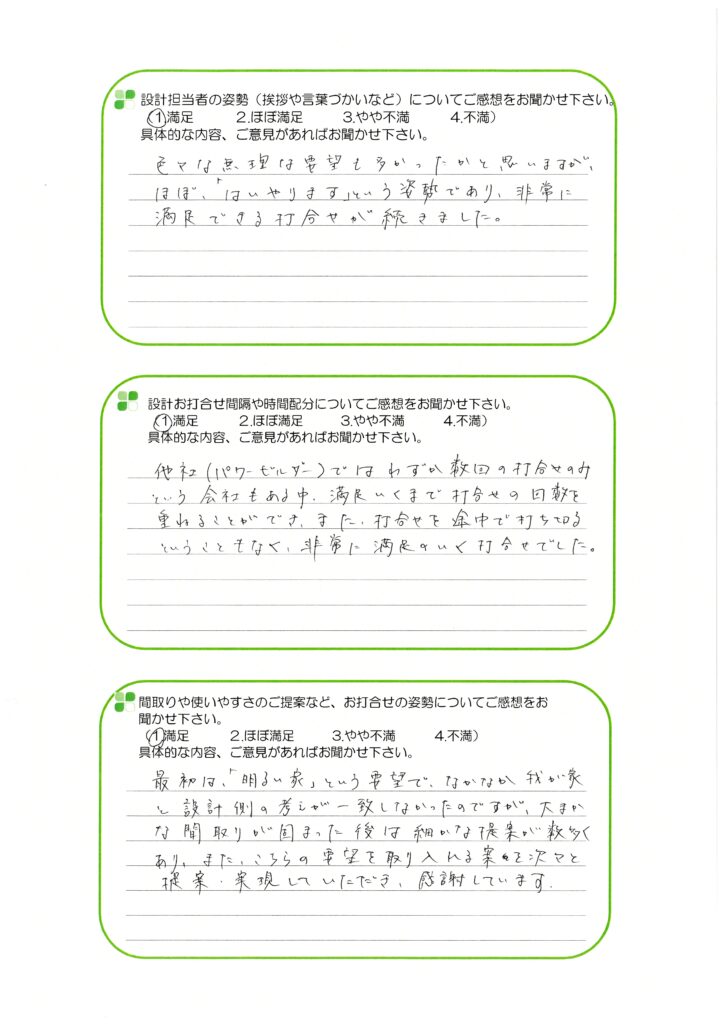 設計担当者の姿勢（挨拶や言葉づかいなど）についてご感想をお聞かせ下さい。
（1.満足　2.ほぼ満足　3.やや不満　4.不満）
具体的な内容、ご意見があればお聞かせ下さい。
色々な無理な要望も多かったかと思いますが、
ほぼ、「はいやります」という姿勢であり、非常に
満足できる打合せが続きました。
設計お打合せ間隔や時間配分についてご感想をお聞かせ下さい。
（1.満足　2.ほぼ満足　3.やや不満　4.不満）
具体的な内容、ご意見があればお聞かせ下さい。
他社（パワービルダー）ではわずか数回の打合せのみ
という会社もある中、満足いくまで打合せの回数を
重ねることができ、また、打合せを途中で打ち切る
ということもなく、非常に満足のいく打合せでした。
間取りや使いやすさのご提案など、お打合せの姿勢についてご感想をお
聞かせ下さい。
（1.満足　2.ほぼ満足　3.やや不満　4.不満）
具体的な内容、ご意見があればお聞かせ下さい。
最初は、「明るい家」という要望で、なかなか我が家
と設計側の考えが一致しなかったのですが、大まか
な間取りが固まった後は細かな提案が数多く
あり、また、こちらの要望を取り入れる案を次々と
提案・実現していただき、感謝しています.